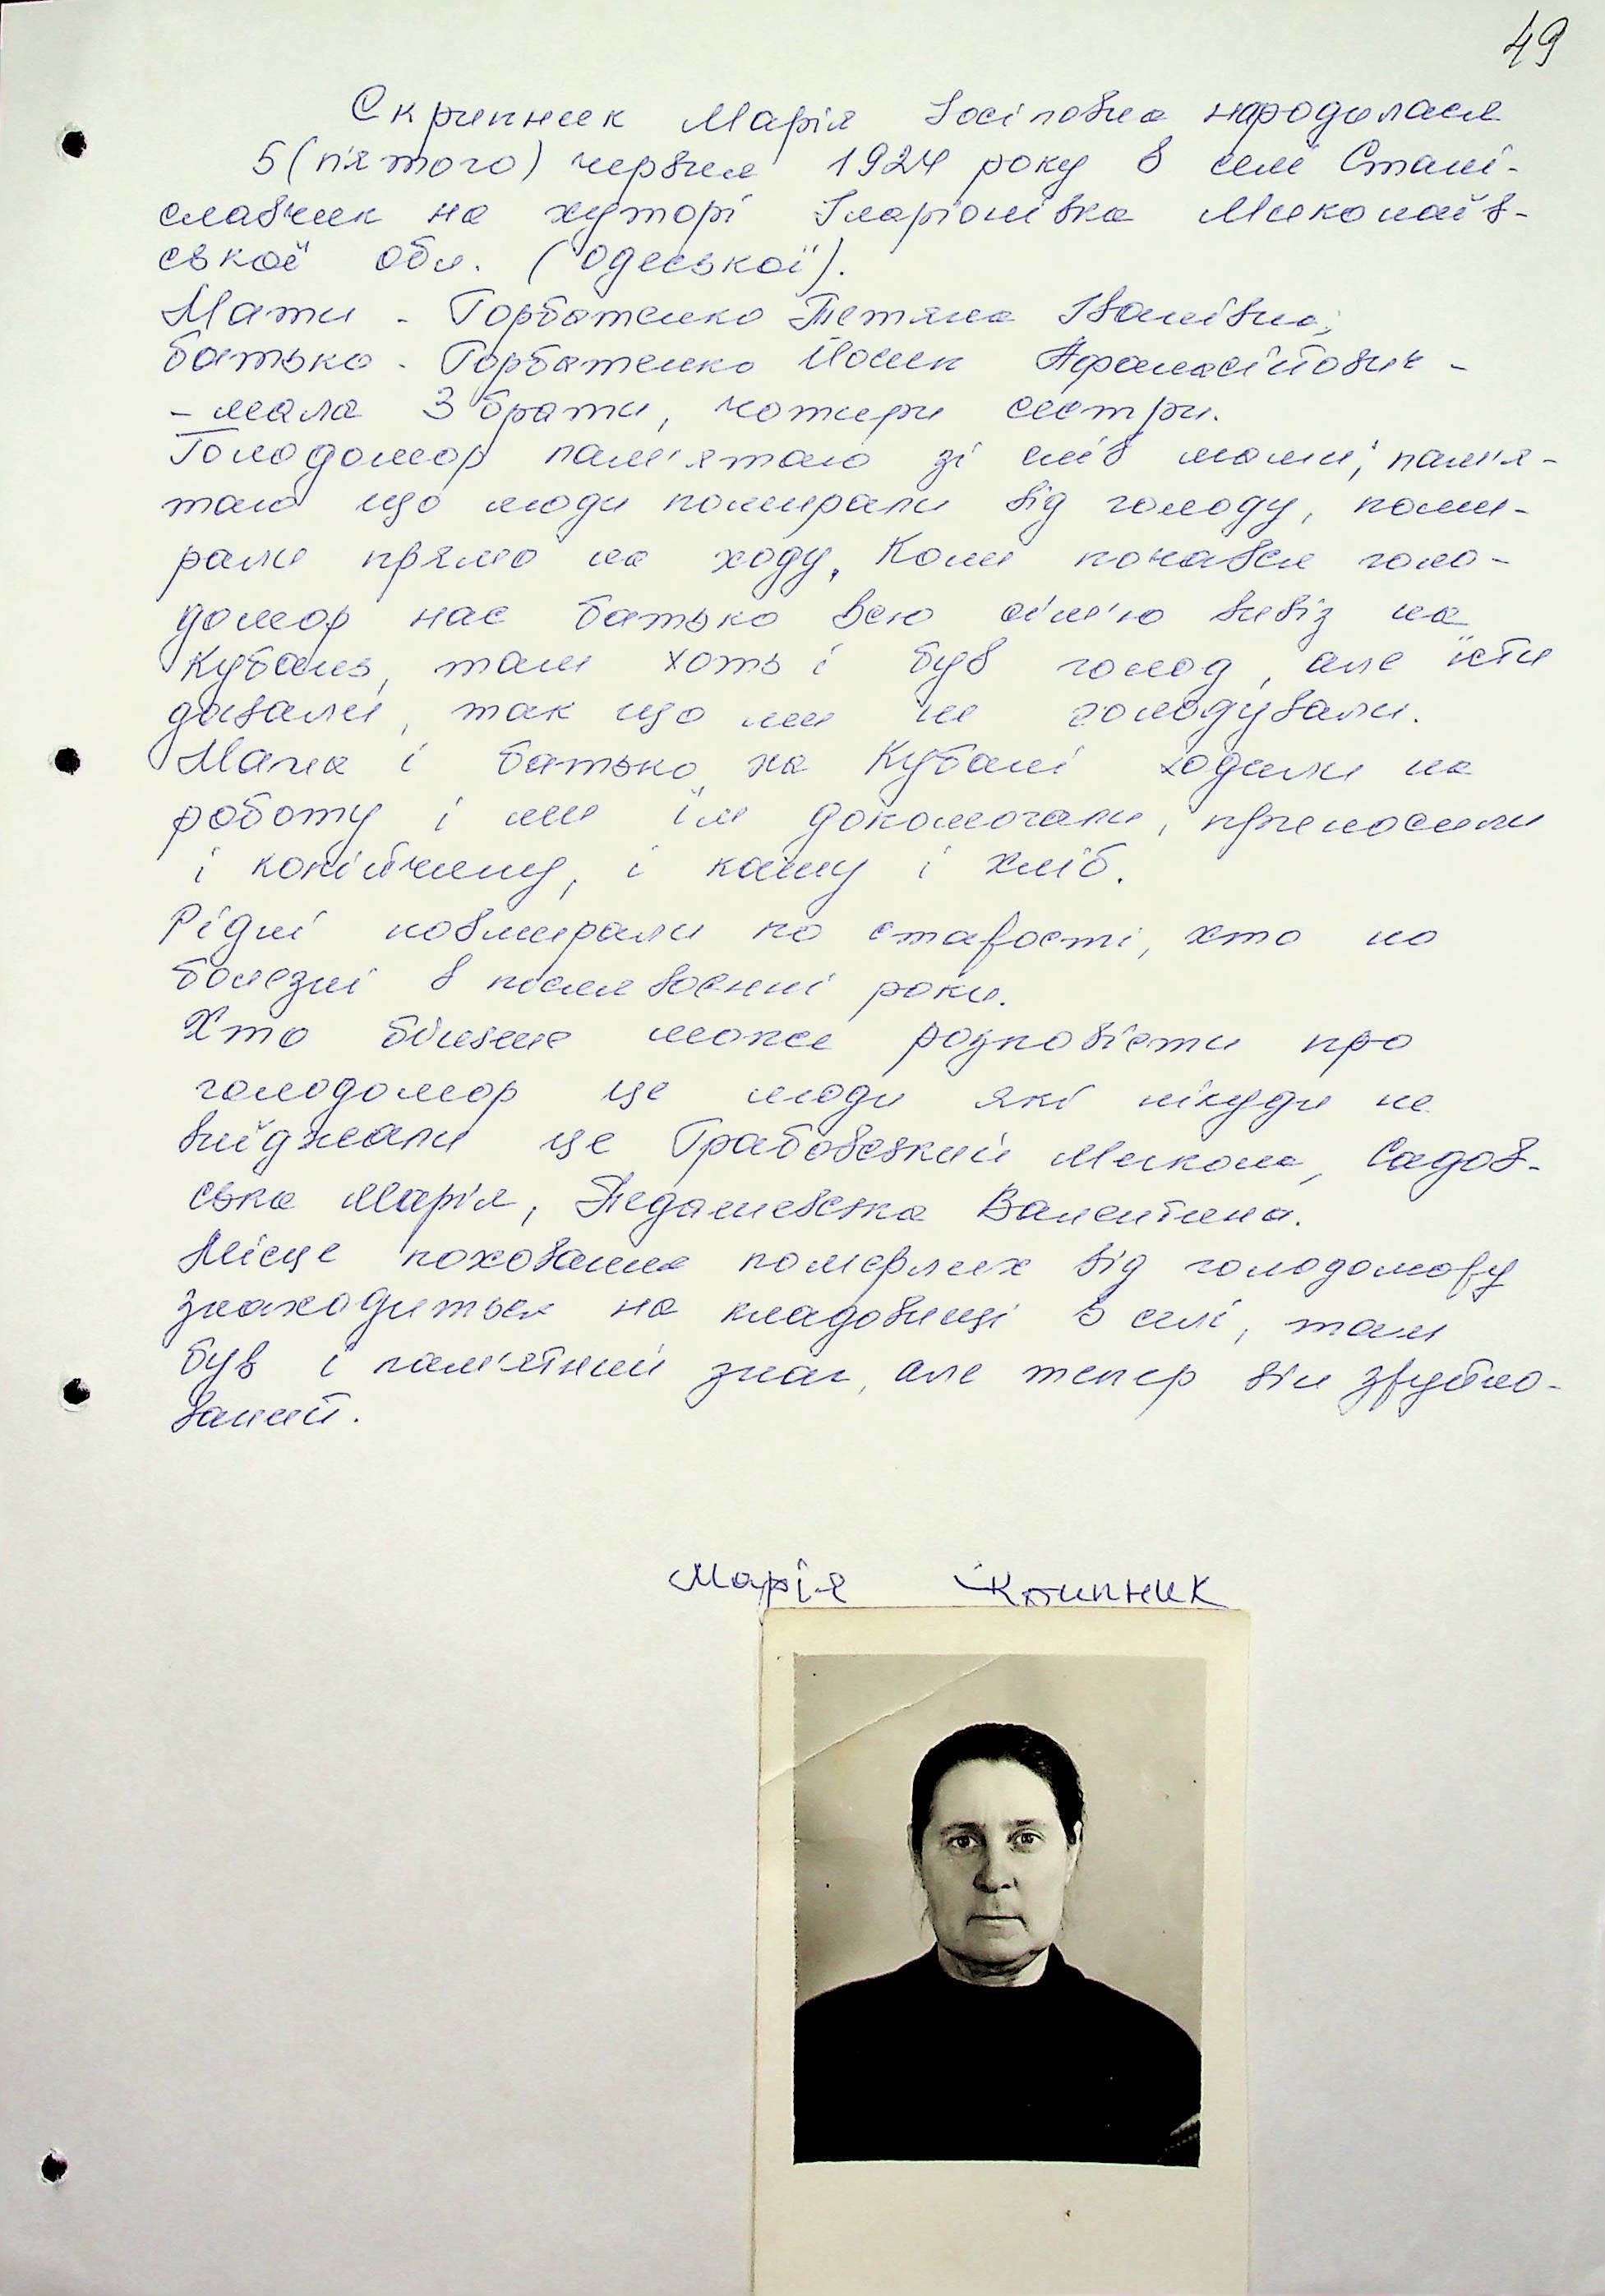 49
Скрипник Марія Іосіповна народилася
5 (п'ятого) червня 1924 року в селі Стані-
славчик на хуторі Іларіонівка Миколаїв-
ської обл. (Одеської).
Мати - Горботенко Тетяна Іванівна;
батько - Горботенко Йосип Афанасійович -
- мала 3 брати, чотири сестри.
Голодомор пам'ятаю зі слів мами, пам'я-
таю що люди помирали від голоду, поми-
рали прямо на ходу. Коли почався голо-
домор нас батько всю сім'ю вивіз на
Кубань, там хоть і був голод, але їсти
давали, так що ми не голодували.
Мама і батько на Кубані ходили на
роботу і ми їм допомогали, приносили
і копійчину, і кашу і хліб.
Рідні повмирали по старості, хто по
болезні в після воєнні роки.
Хто більше може розповісти про
голодомор це люди які нікуди не
виїджали це Грабовський Микола, Садов-
ська Марія, Педашевська Валентина.
Місце поховання померлих від голодомору
знаходиться на кладовищі в селі, там
був і пам'ятний знак, але тепер він зруйно-
ваний.
Марія Скрипник